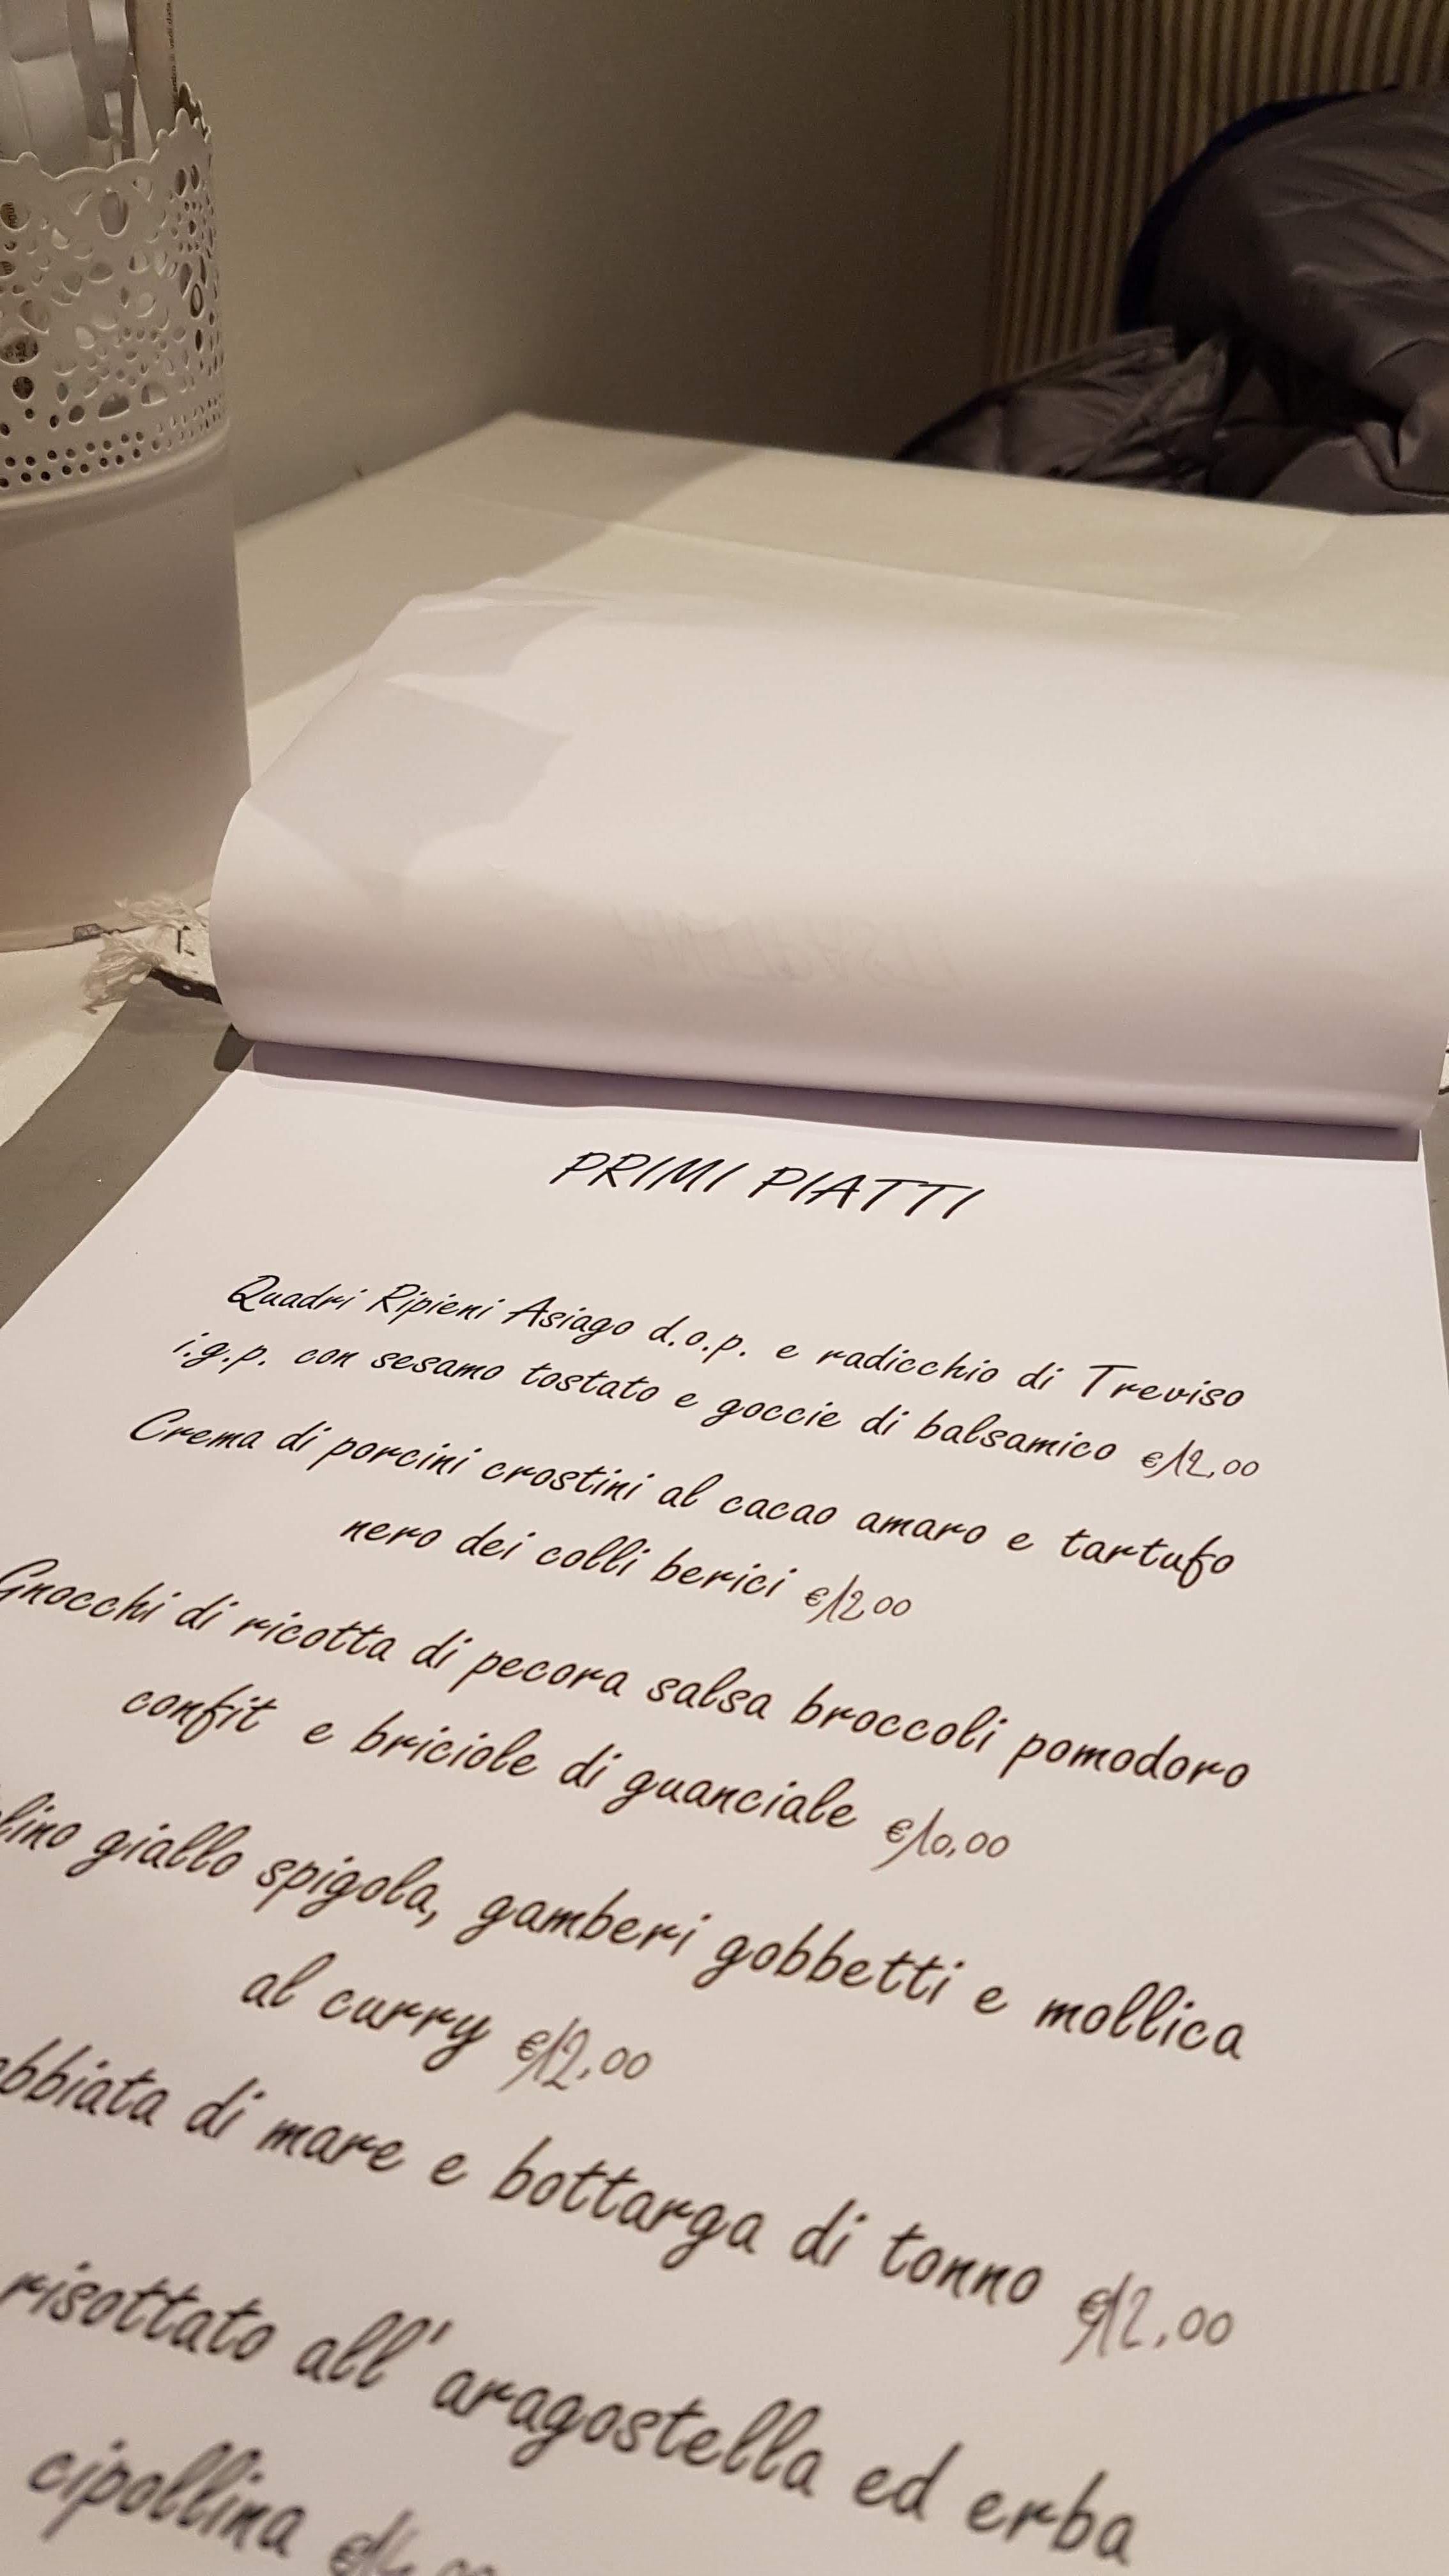 PRIMI PIATTI
Quadri Ripieni Asiago d.o.p. e radicchio di Treviso
i.g.p. con sesamo tostato e goccie di balsamico €12,00
Crema di porcini crostini al cacao amaro e tartufo
nero dei colli berici €12,00
Gnocchi di ricotta di pecora salsa broccoli pomodoro
confit e briciole di guanciale €10,00
giallo spigola, gamberi gobbetti e mollica
al curry €12,00
di mare e bottarga di tonno €12,00
risottato all'aragostella ed erba
cipollina